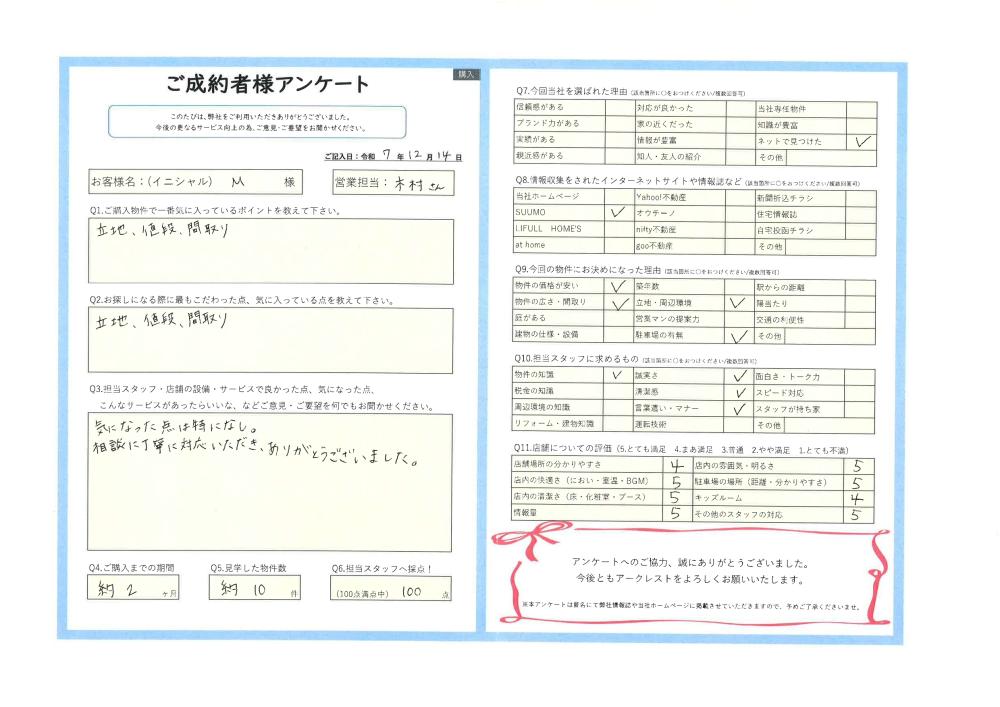 購入
ご成約者様アンケート
このたびは、弊社をご利用いただきありがとうございました。
今後の更なるサービス向上の為、ご意見・ご要望をお聞かせください。
ご記入日：令和 7 年 12 月 14 日
お客様名：(イニシャル) M 様
営業担当：木村さん
Q1.ご購入物件で一番気に入っているポイントを教えて下さい。
立地、値段、間取り
Q2.お探しになる際に最もこだわった点、気に入っている点を教えて下さい。
立地、値段、間取り
Q3.担当スタッフ・店舗の設備・サービスで良かった点、気になった点、
こんなサービスがあったらいいな、などご意見・ご要望を何でもお聞かせください。
気になった点は特になし。
相談に丁寧に対応いただき、ありがとうございました。
Q4.ご購入までの期間
約 2 ヶ月
Q5.見学した物件数
約 10 件
Q6.担当スタッフへ採点！
(100点満点中) 100 点
Q7.今回当社を選ばれた理由 (該当箇所に○をおつけください/複数回答可)
信頼感がある 対応が良かった 当社専任物件
ブランド力がある 家の近くだった 知識が豊富
実績がある 情報が豊富 ネットで見つけた ✓
親近感がある 知人・友人の紹介 その他
Q8.情報収集をされたインターネットサイトや情報誌など (該当箇所に○をおつけください/複数回答可)
当社ホームページ Yahoo!不動産 新聞折込チラシ
SUUMO ✓ オウチーノ 住宅情報誌
LIFULL HOME'S nifty不動産 自宅投函チラシ
at home goo不動産 その他
Q9.今回の物件にお決めになった理由 (該当箇所に○をおつけください/複数回答可)
物件の価格が安い ✓ 築年数 駅からの距離
物件の広さ・間取り ✓ 立地・周辺環境 ✓ 陽当たり
庭がある 営業マンの提案力 交通の利便性
建物の仕様・設備 駐車場の有無 ✓ その他
Q10.担当スタッフに求めるもの (該当箇所に○をおつけください/複数回答可)
物件の知識 ✓ 誠実さ ✓ 面白さ・トーク力
税金の知識 清潔感 ✓ スピード対応
周辺環境の知識 言葉遣い・マナー ✓ スタッフが持ち家
リフォーム・建物知識 運転技術 その他
Q11.店舗についての評価 (5.とても満足 4.まあ満足 3.普通 2.やや満足 1.とても不満)
店舗場所の分かりやすさ 4 店内の雰囲気・明るさ 5
店内の快適さ (におい・室温・BGM) 5 駐車場の場所 (距離・分かりやすさ) 5
店内の清潔さ (床・化粧室・ブース) 5 キッズルーム 4
情報量 5 その他のスタッフの対応 5
アンケートへのご協力、誠にありがとうございました。
今後ともアークレストをよろしくお願いいたします。
※本アンケートは匿名にて弊社情報誌や当社ホームページに掲載させていただきますので、予めご了承くださいませ。